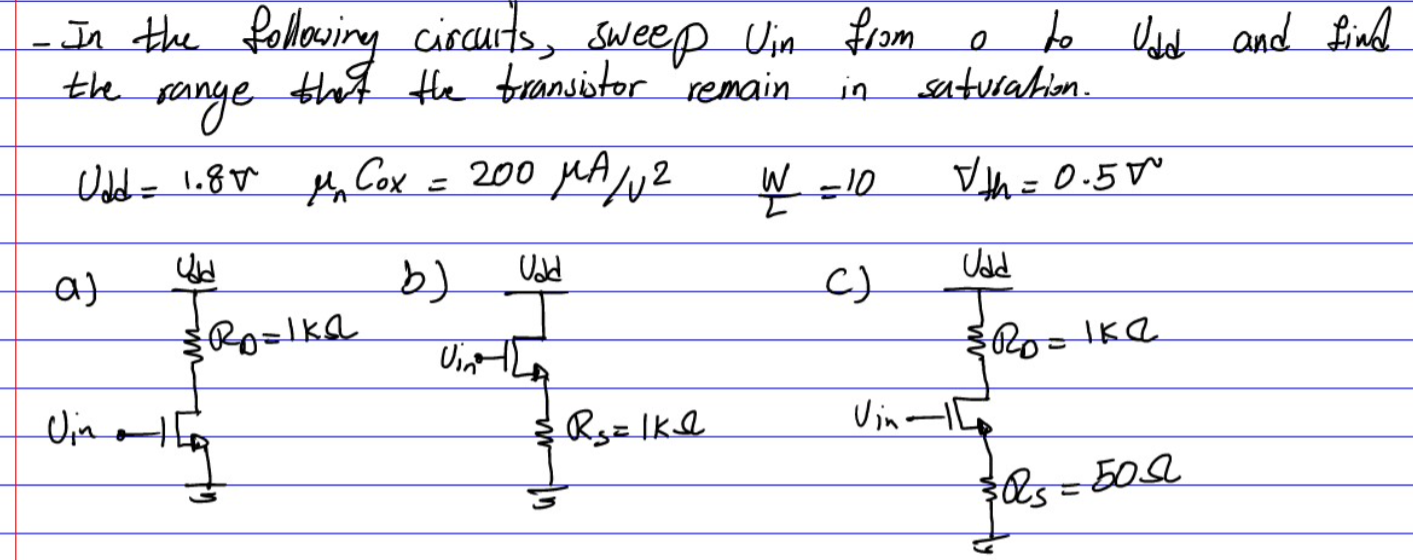 - In the following circuits, sweep Vin from 0 to Vdd and find
the range that the transistor remain in saturation.
Vdd = 1.8V μn Cox = 200 μA/V2 W/L = 10 Vth = 0.5V
a) Vdd b) Vdd c) Vdd
RD = 1KΩ Vin RD = 1KΩ
Vin RS = 1KΩ Vin
RS = 50Ω